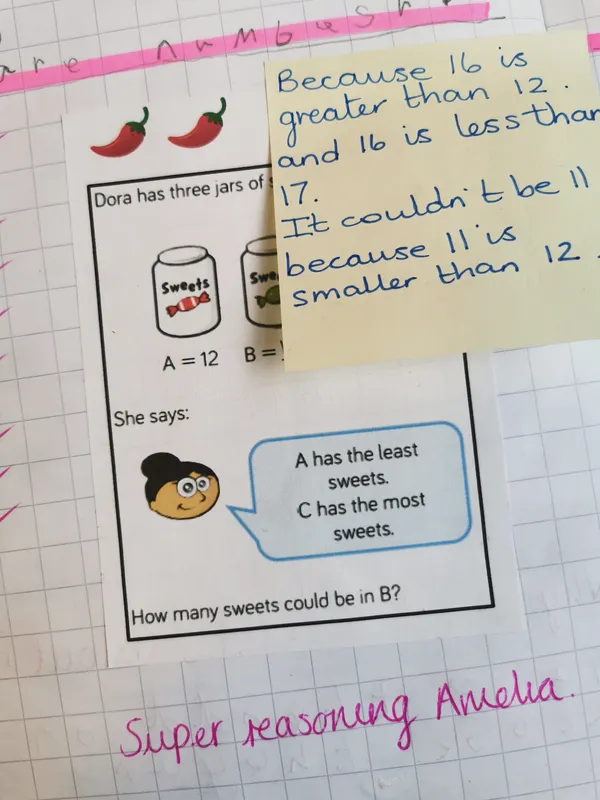 are numbers
Because 16 is
greater than 12.
and 16 is less than
17.
It couldn't be 11
because 11 is
smaller than 12.
Dora has three jars of
Sweets
Swe
A = 12
B =
She says:
A has the least
sweets.
C has the most
sweets.
How many sweets could be in B?
Super reasoning Amelia.